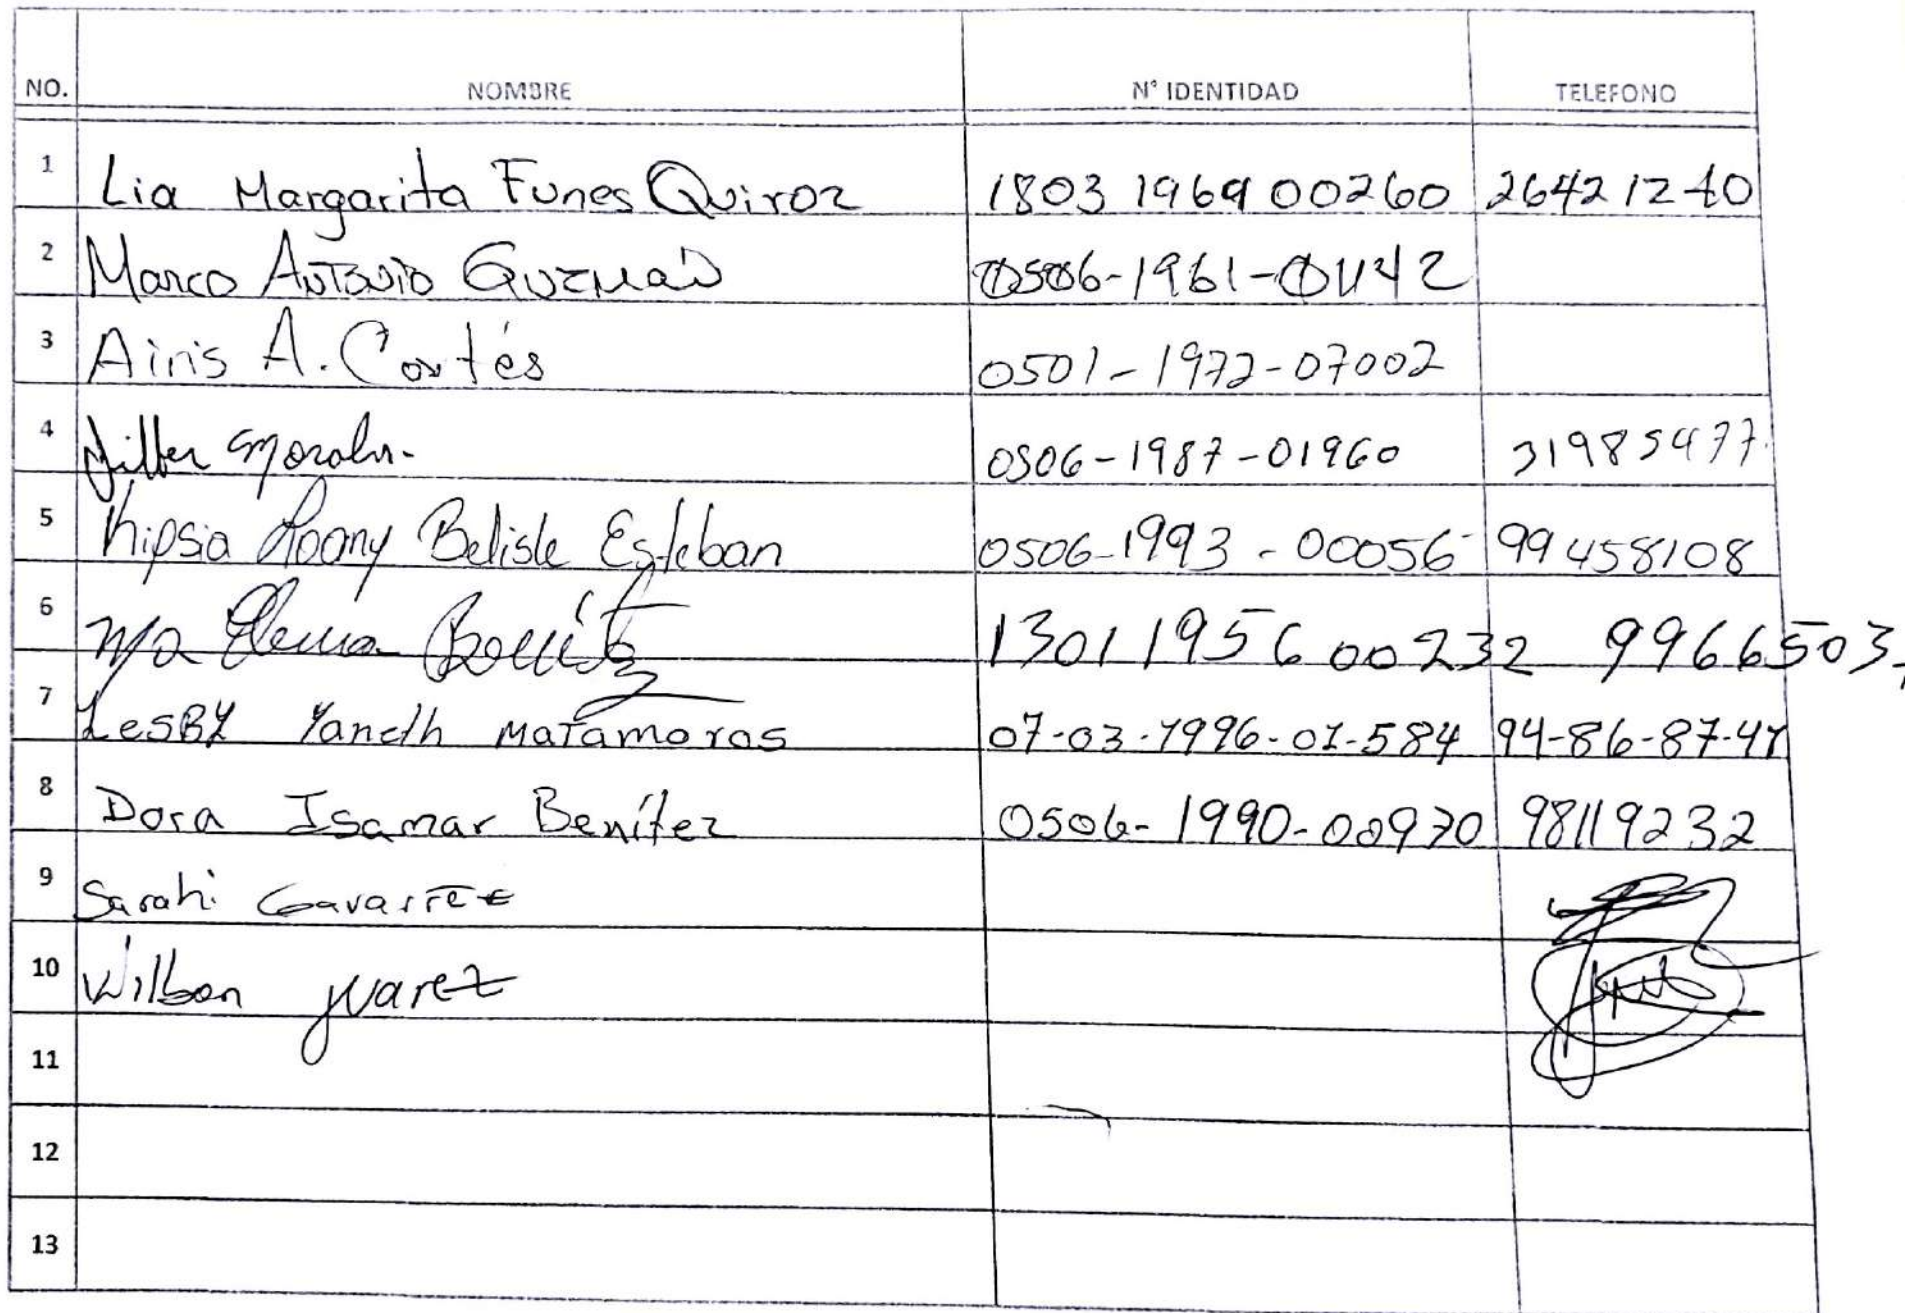 NO. NOMBRE N° IDENTIDAD TELEFONO
1 Lia Margarita Funes Quiroz 1803 1969 00260 26421240
2 Marco Antonio Guzman 0506-1961-01142
3 Airis A. Cortés 0501-1972-07002
4 Morales. 0506-1987-01960 31985477.
5 Kipsia Roany Belisle Esteban 0506-1993-00056 99458108
6 Ma Elena Benítz 1301 1956 00232 9966503
7 LesBY Yaneth Matamoros 07-03-1996-01-584 94-86-87-47
8 Dora Isamar Benítez 0506-1990-00970 98119232
9 Sarahi Gavarrete
10 Wilson juarez
11
12
13